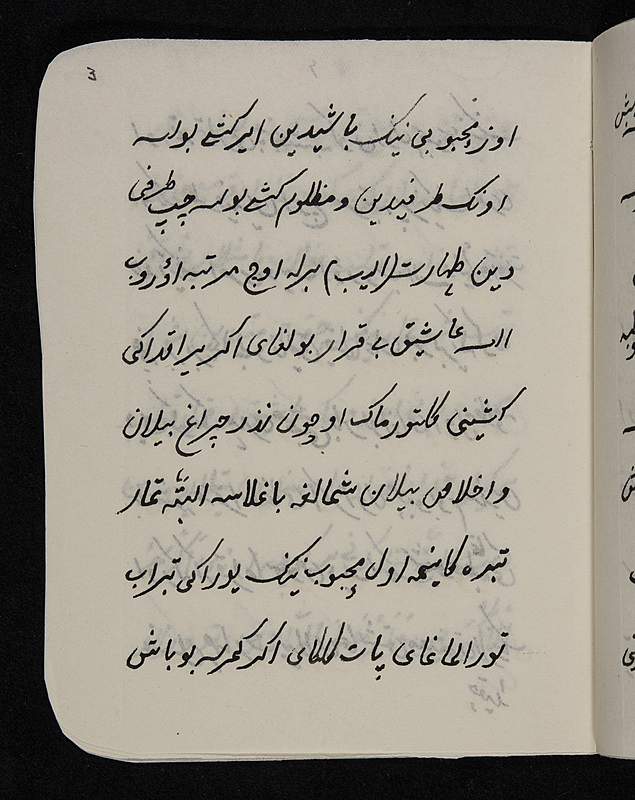 ٣
اوز محبوبی نینک باشیدین ایر کشی بولسه
اونک طرفیدین و مظلوم کشی بولسه چپ طرفی
دین طهارت (ادیب) برله اوچ مرتبه
السه عاشیق بی قرار بولغای اکر ییراقداکی
کیشینی کلتورماک اوچون نذر چراغ بیلان
و اخلاص بیلان شمالغه باغلاسه البتّه
اول محبوب نینک یوراکی
پات کلکای اکر کمرسه بو باش